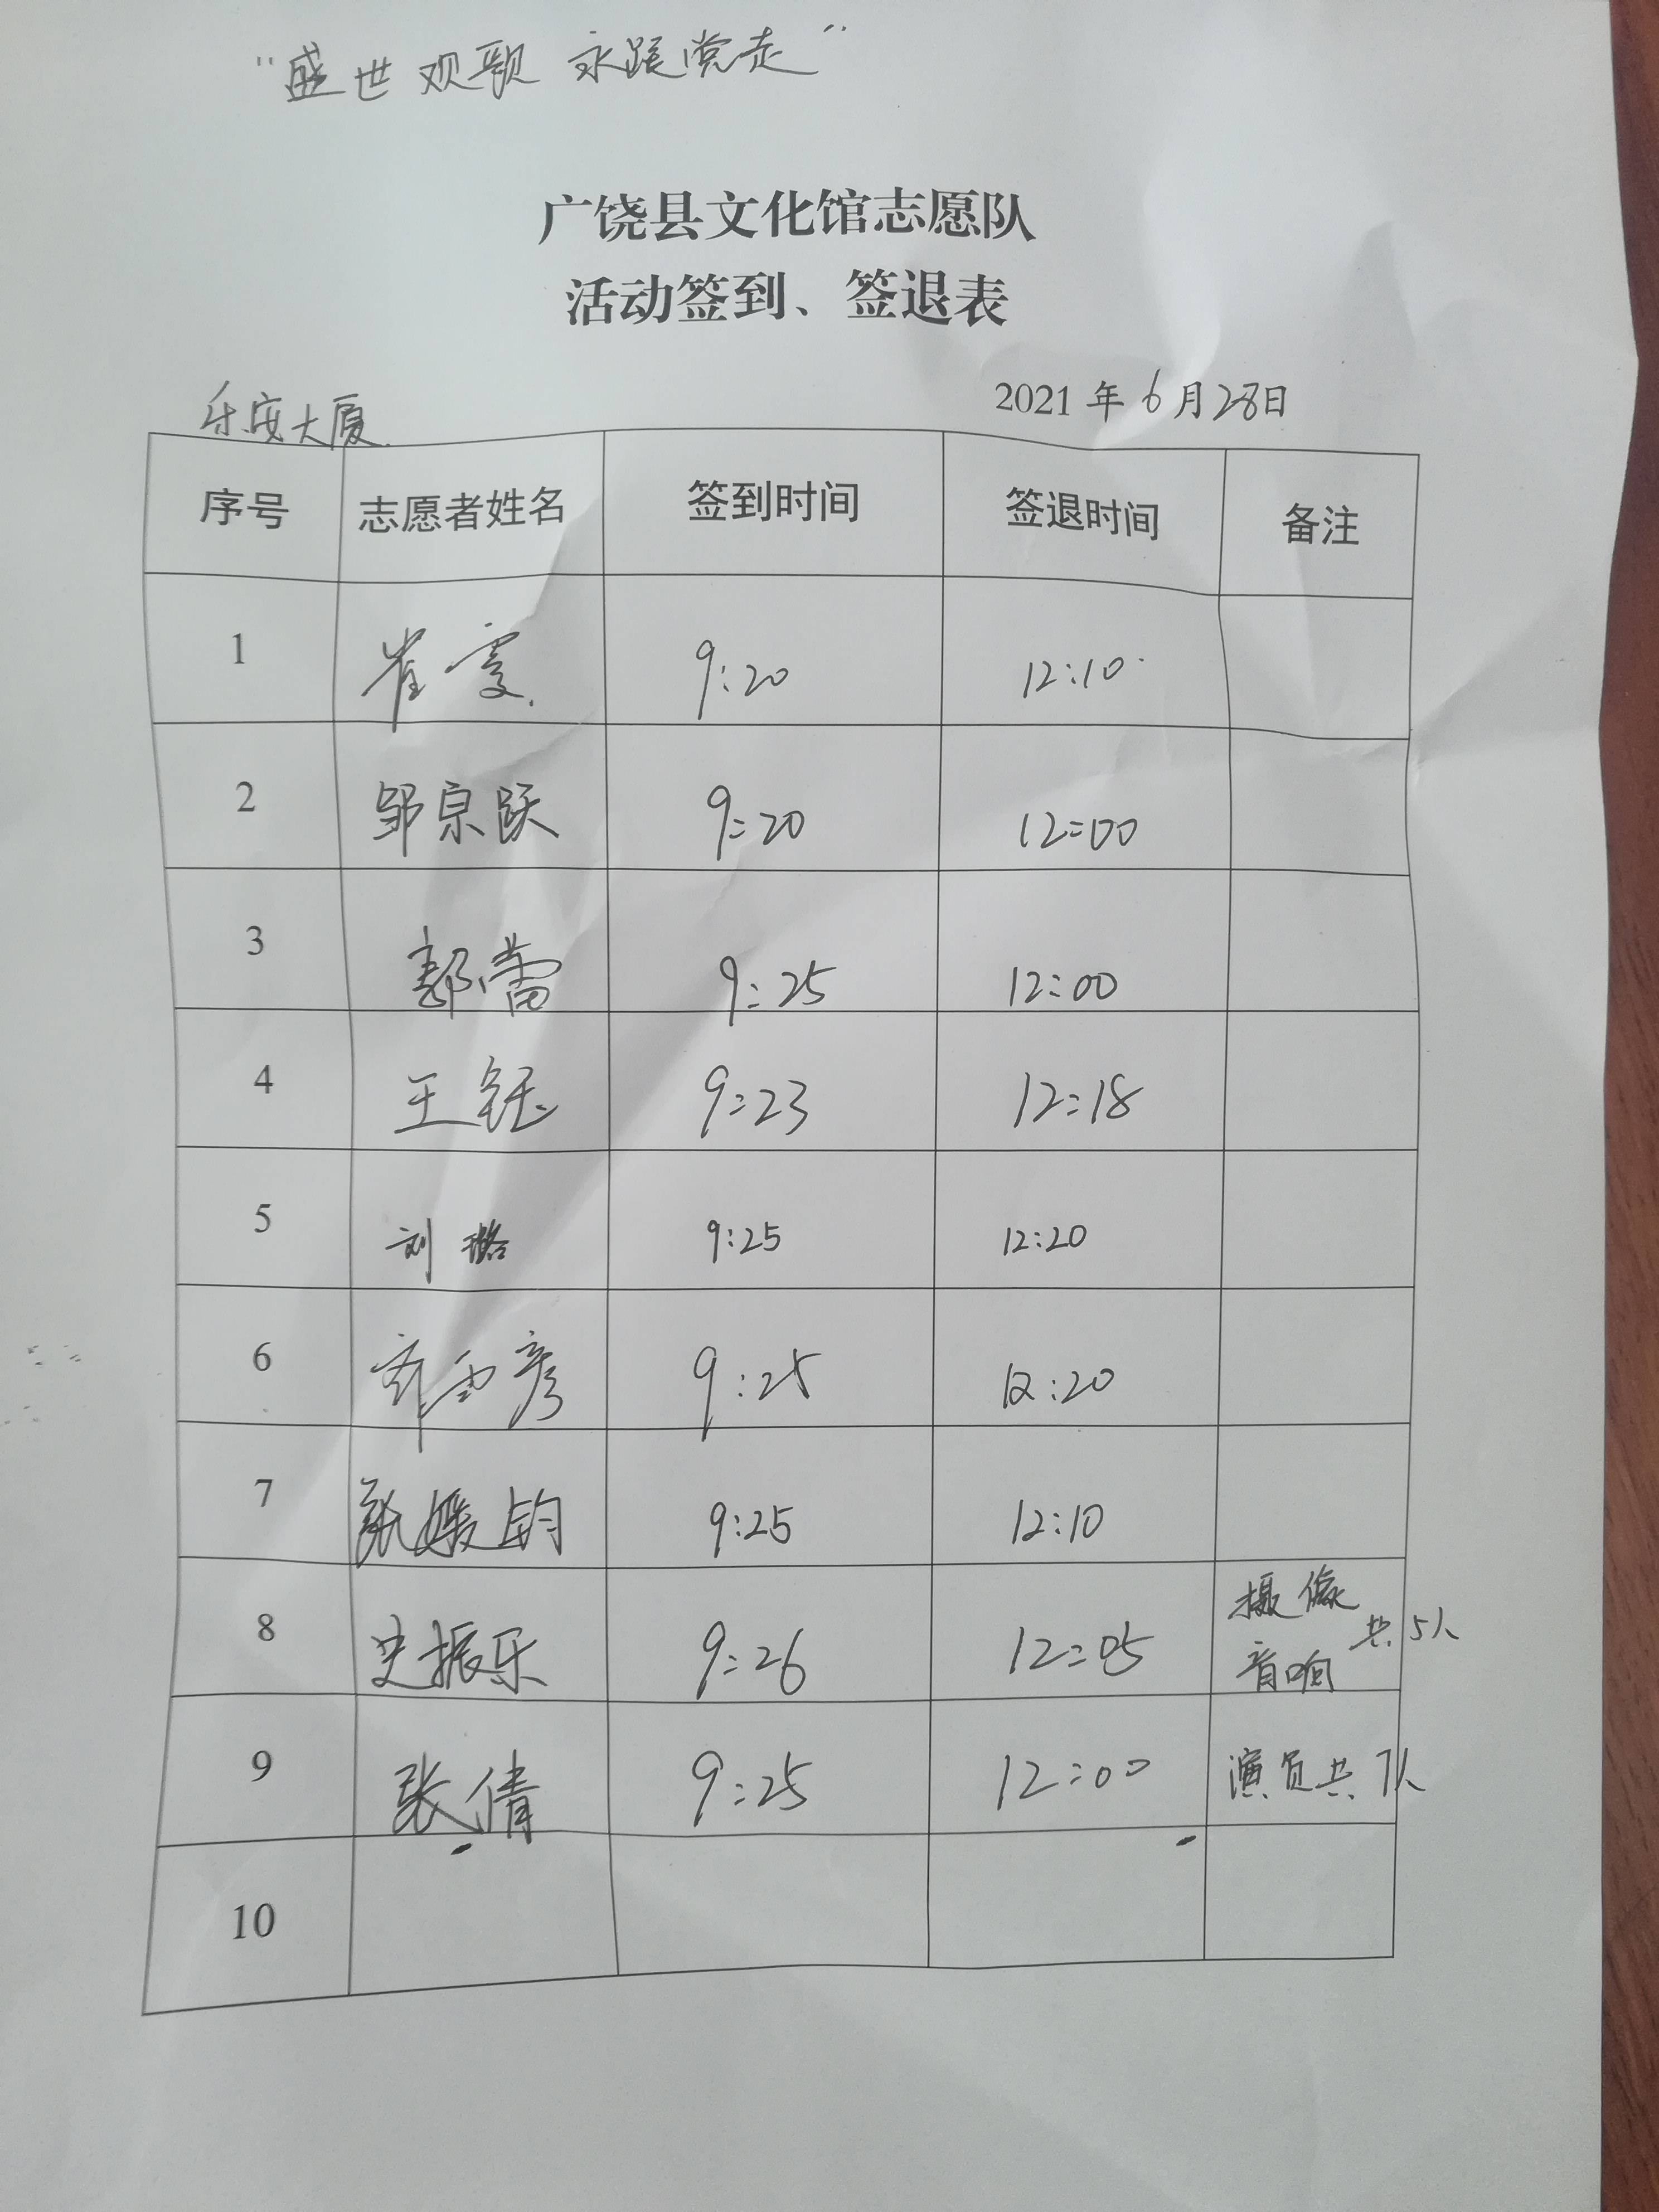 "盛世观歌 永跟党走"
广饶县文化馆志愿队
活动签到、签退表
乐安大厦
2021 年 6 月 28 日
序号 志愿者姓名 签到时间 签退时间 备注
1 崔雯 9:20 12:10
2 邹京跃 9:20 12:00
3 郭蕾 9:25 12:00
4 王钰 9:23 12:18
5 刘璐 9:25 12:20
6 9:25 12:20
7 张媛钧 9:25 12:10
8 史振乐 9:26 12:05 摄像 音响 共5人
9 张倩 9:25 12:00 演员共7人
10